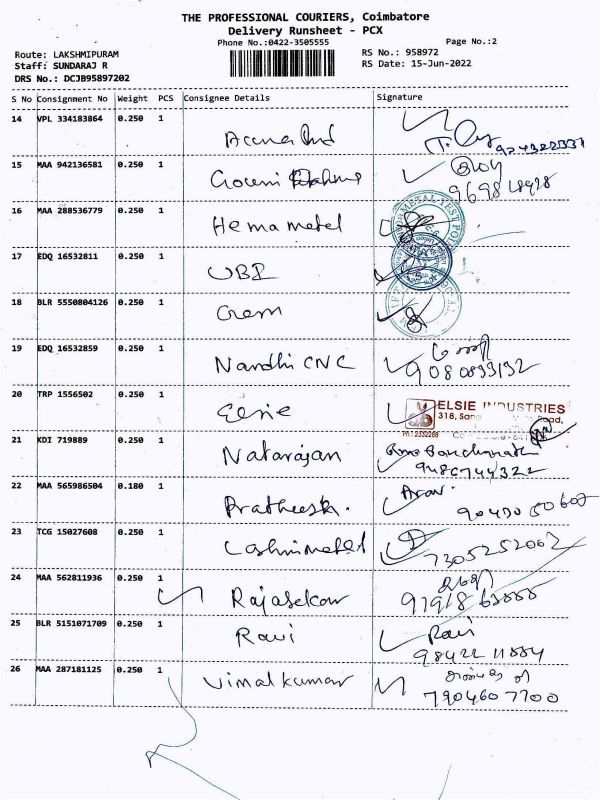 THE PROFESSIONAL COURIERS, Coimbatore
Delivery Runsheet - PCX
Phone No.:0422-3505555
Page No.:2
Route: LAKSHMIPURAM
Staff: SUNDARAJ R
DRS No.: DCJB95897202
RS No.: 958972
RS Date: 15-Jun-2022
S No Consignment No Weight PCS Consignee Details Signature
14 VPL 334183864 0.250 1
15 MAA 942136581 0.250 1 Gowri
16 MAA 288536779 0.250 1 Hema metel
17 EDQ 16532811 0.250 1 UBI
18 BLR 5550804126 0.250 1 Gem
19 EDQ 16532859 0.250 1 Nandhi CNC
9080833132
20 TRP 1556502 0.250 1 Elsie
ELSIE INDUSTRIES
318, Road,
PH: 2332288
21 KDI 719889 0.250 1 Natarajan
9486744322
22 MAA 565986504 0.180 1 Pratheesh.
23 TCG 15027608 0.250 1
7305252062
24 MAA 562811936 0.250 1 Rajasekar
25 BLR 5151071709 0.250 1 Ravi Ravi
98422 11884
26 MAA 287181125 0.250 1 Vimal kumar
7904607700